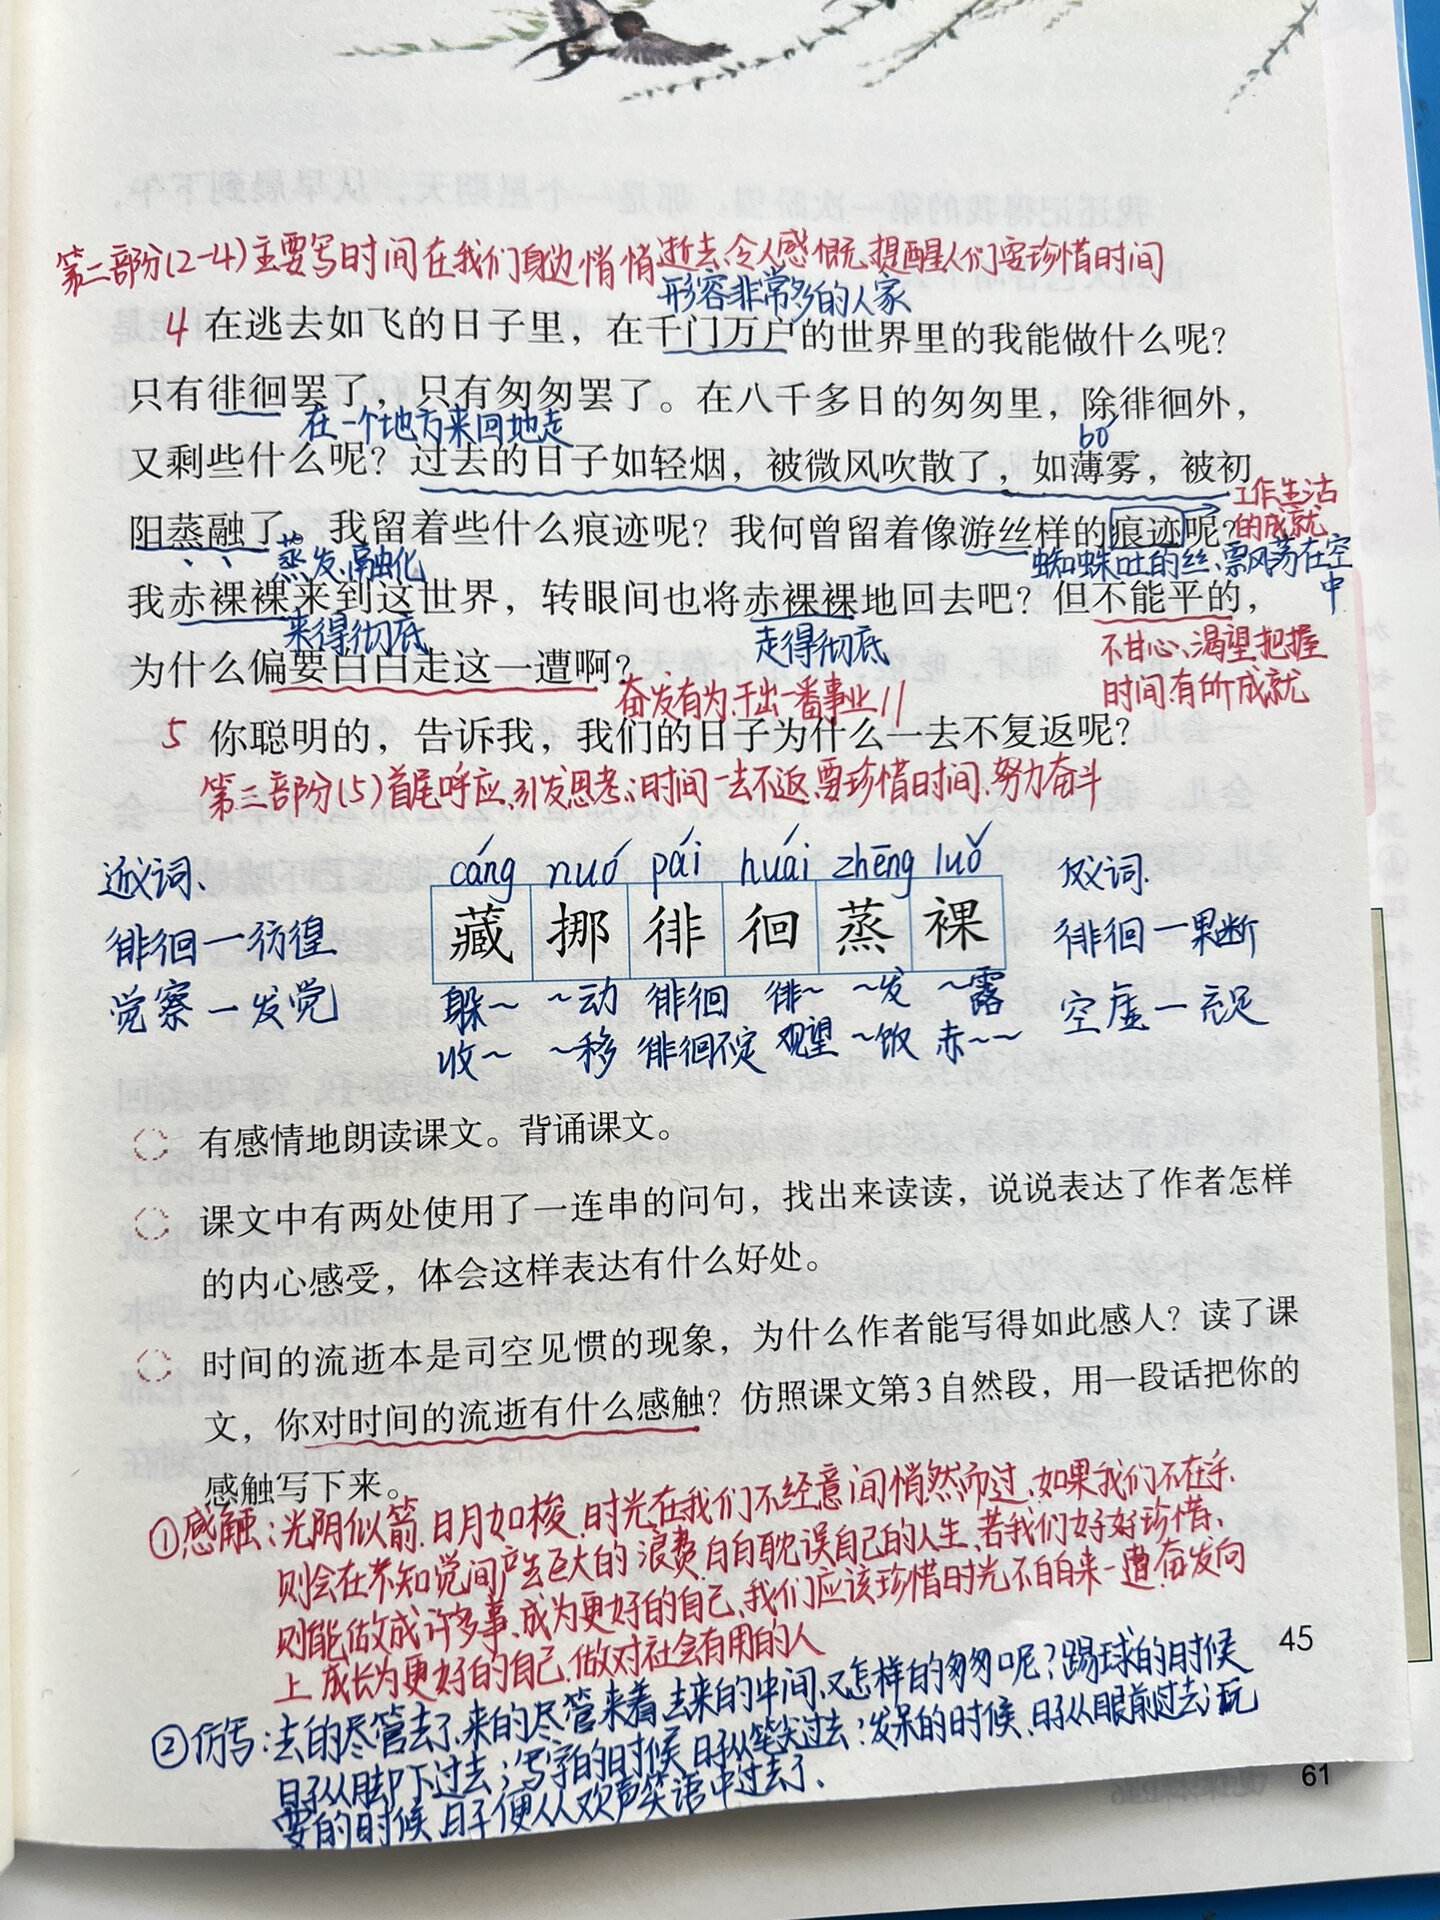 第二部分(2-4)主要写时间在我们身边悄悄逝去、令人感慨、提醒人们要珍惜时间
形容非常多的人家
4 在逃去如飞的日子里，在千门万户的世界里的我能做什么呢？
只有徘徊罢了，只有匆匆罢了。在八千多日的匆匆里，除徘徊外，
在一个地方来回地走
bó
又剩些什么呢？过去的日子如轻烟，被微风吹散了，如薄雾，被初
工作、生活的成就
阳蒸融了。我留着些什么痕迹呢？我何曾留着像游丝样的痕迹呢？
蒸发、融化
蜘蛛吐的丝、飘荡在空中
我赤裸裸来到这世界，转眼间也将赤裸裸地回去吧？但不能平的，
来得彻底
走得彻底
不甘心、渴望把握
时间、有所成就
为什么偏要白白走这一遭啊？
奋发有为、干出一番事业 //
5 你聪明的，告诉我，我们的日子为什么一去不复返呢？
第三部分(5)首尾呼应、引发思考：时间一去不返、要珍惜时间、努力奋斗
近义词、
徘徊—彷徨
觉察—发觉
cáng nuó pái huái zhēng luǒ
藏 挪 徘 徊 蒸 裸
躲～ ～动 徘徊 徘～ ～发 ～露
收～ ～移 徘徊不定 观望 ～饭 赤～～
反义词.
徘徊—果断
空虚—充足
有感情地朗读课文。背诵课文。
课文中有两处使用了一连串的问句，找出来读读，说说表达了作者怎样
的内心感受，体会这样表达有什么好处。
时间的流逝本是司空见惯的现象，为什么作者能写得如此感人？读了课
文，你对时间的流逝有什么感触？仿照课文第3自然段，用一段话把你的
感触写下来。
①感触：光阴似箭、日月如梭、时光在我们不经意间悄然而过、如果我们不在乎、
则会在不知觉间产生巨大的浪费、白白耽误自己的人生、若我们好好珍惜、
则能做成许多事、成为更好的自己、我们应该珍惜时光不白白来一遭、奋发向
上、成长为更好的自己、做对社会有用的人
45
②仿写：去的尽管去了、来的尽管来着、去来的中间、又怎样的匆匆呢？踢球的时候
日子从脚下过去；写字的时候、日子从笔尖过去；发呆的时候、日子从眼前过去；玩
耍的时候、日子便从欢声笑语中过去了、
61